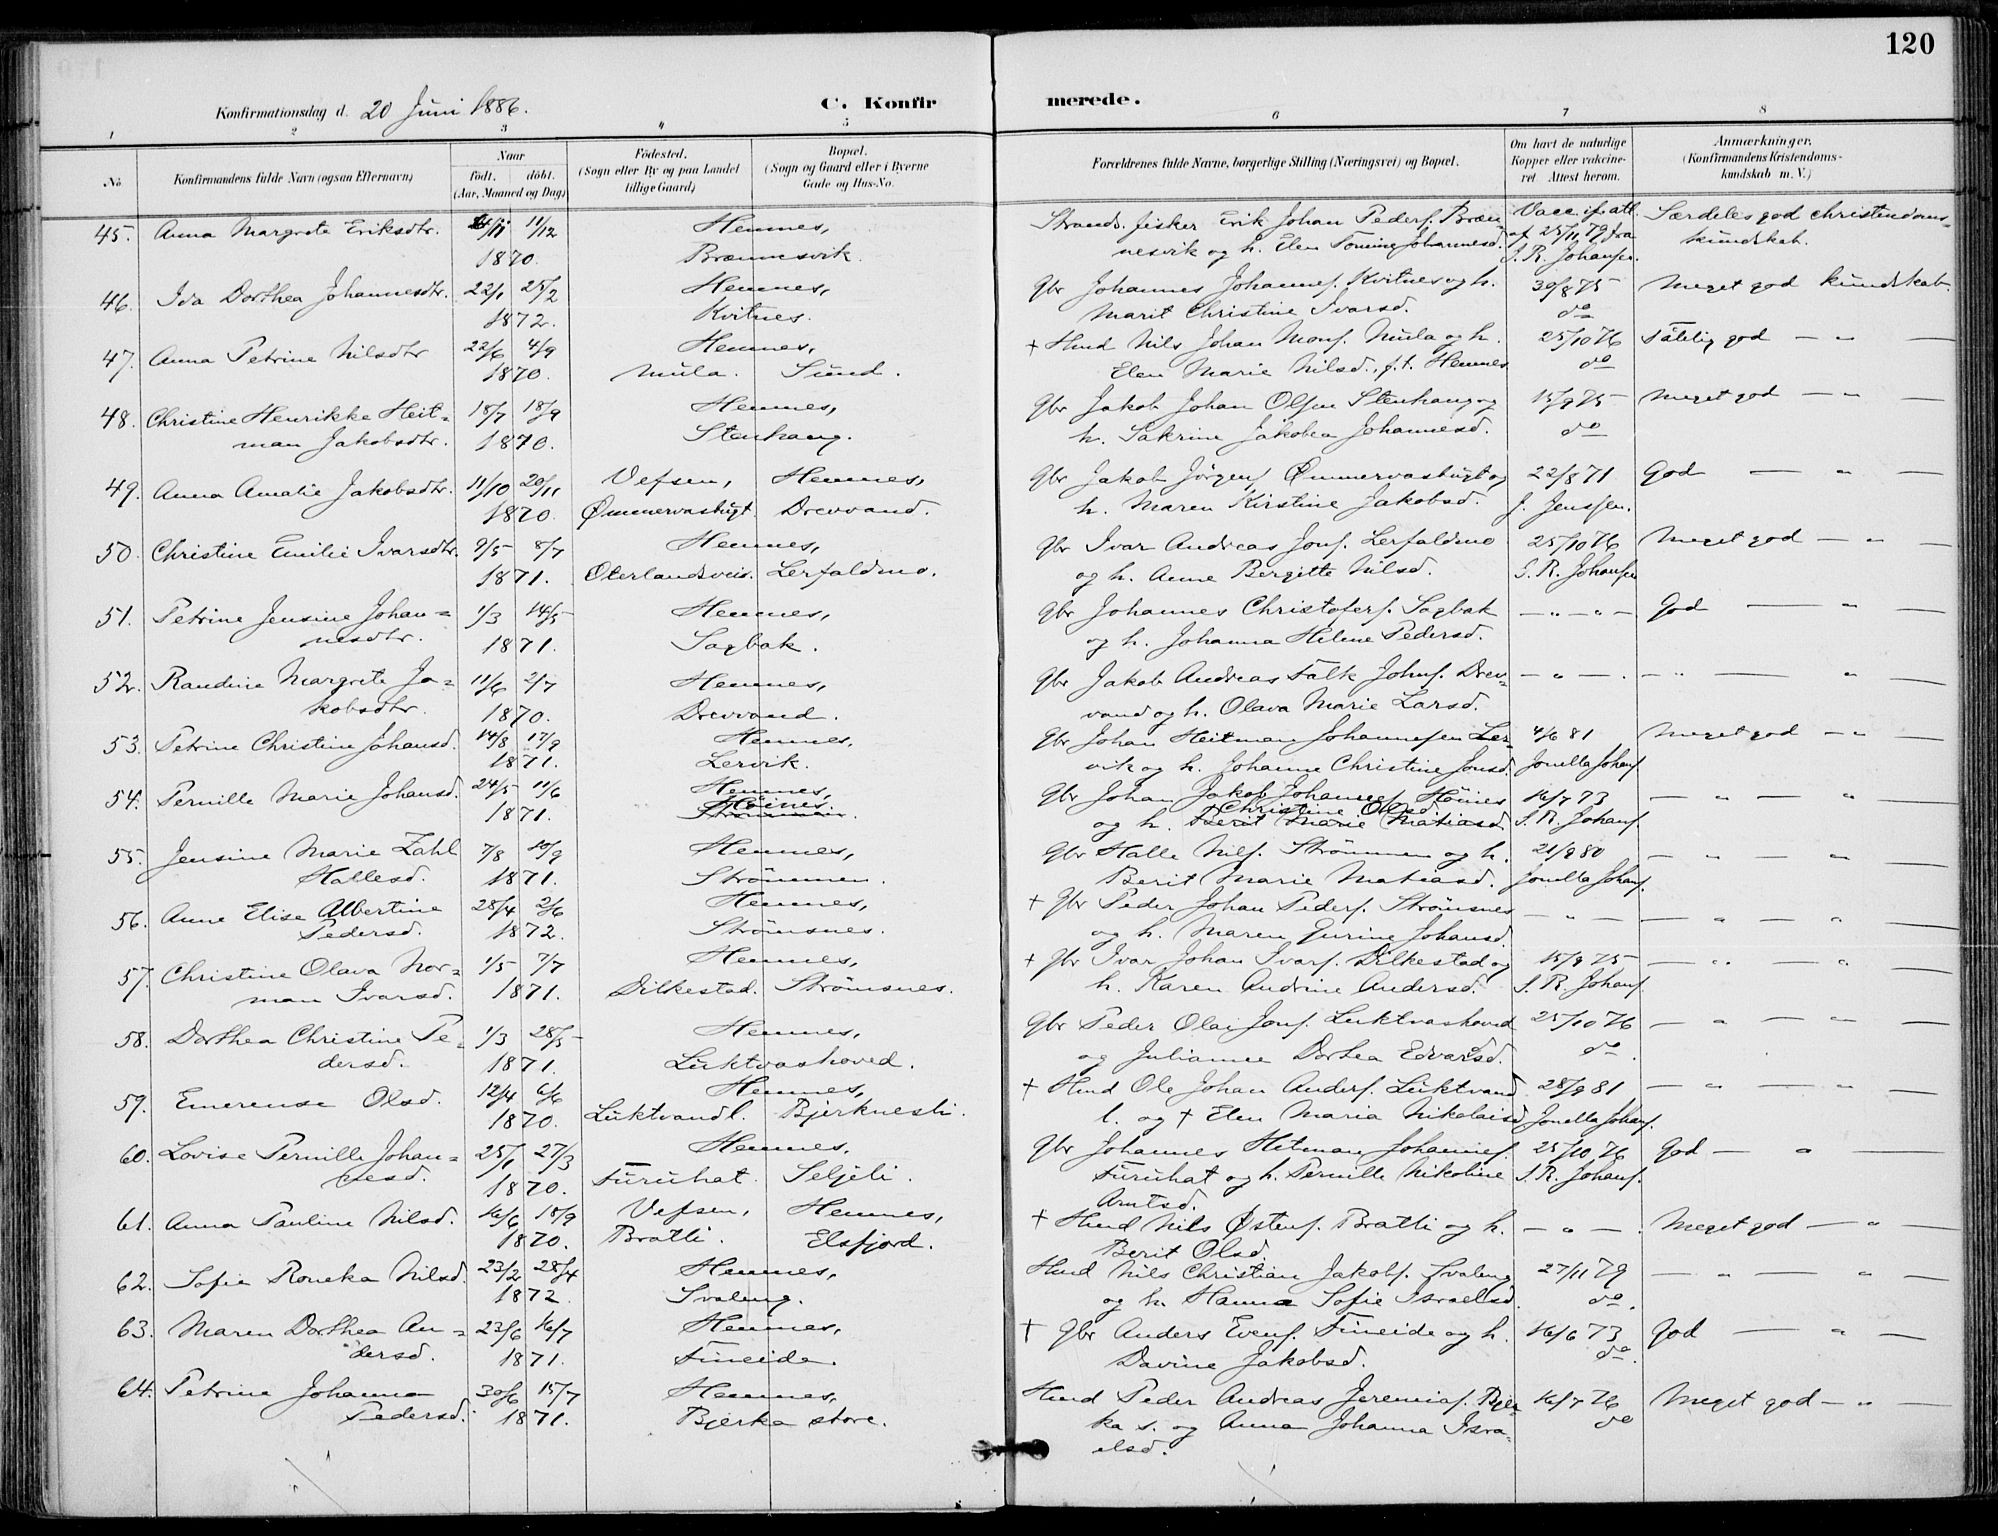 120
Konfirmationsdag d. 20 Juni 1886.
C. Konfirmerede.
1 2 3 4 5 6 7 8
No
Konfirmandens fulde Navn (ogsaa Efternavn)
Naar
født. döbt.
(Aar, Maaned og Dag)
Födested.
(Sogn eller By og paa Landet
tillige Gaard)
Bopæl.
(Sogn og Gaard eller i Byerne
Gade og Hus-No.
Forældrenes fulde Navne, borgerlige Stilling (Næringsvei) og Bopæl.
Om havt de naturlige
Kopper eller vakcine-
ret. Attest herom.
Anmærkninger.
(Konfirmandens Kristendoms-
kundskab m. V.)
45. Anna Margrete Eriksdtr. 11/12 Hemnes, Strands. fisker Erik Johan Peders. Bræn- Vacc. if. att. Særdeles god christendoms-
1870. Brænnesvik. nesvik og h. Elen Tomine Johannesd. af 25/11 79 fra kundskab.
S. R. Johansen.
46. Ida Dorthea Johannesdtr. 22/1 25/2 Hemnes, Gbr Johannes Johannes. Kvitnes og h. 30/8 75 Meget god kundskab.
1872. Kvitnes. Marit Christine Ivarsd. do
47. Anna Petrine Nilsdtr 22/6 4/9 Hemnes, † Hmd Nils Johan Mons. Mula og h. 25/10 76 Tålelig god — " —
1870. Mula. Sund. Elen Marie Nilsd., f. t. Hemnes do
48. Christine Henrikke Heit- 18/7 18/9 Hemnes, Gbr Jakob Johan Olsen Stenhaug og 15/9 75 Meget god — " —
man Jakobsdtr. 1870. Stenhaug. h. Sakrine Jakobea Johannesd. do
49. Anna Amalie Jakobsdtr. 11/10 20/11 Vefsen, Hemnes, Gbr Jakob Jörgens. Ømmervashugt og 22/8 71 God — " —
1870. Ømmervashugt. Drevvand. h. Maren Kirstine Jakobsd. J. Jenssen.
50. Christine Emilie Ivarsdtr. 9/5 8/7 Hemnes, Gbr Ivar Andreas Jons. Lerfaldmo 25/10 76 Meget god — " —
1871. Oterlandsveis. Lerfaldmo. og h. Anne Bergitte Nilsd. S. R. Johansen
51. Petrine Jensine Johan- 1/3 14/5 Hemnes, Gbr Johannes Christofers. Sagbak — " — " — God — " —
nesdtr. 1871. Sagbak. og h. Johanna Helene Pedersd.
52. Randine Margrete Ja- 11/6 2/7 Hemnes, Gbr Jakob Andreas Falk Johns. Drev- — " — . — " — " —
kobsdtr. 1870. Drevvand. vand og h. Olava Marie Larsd.
53. Petrine Christine Johansd. 14/8 17/9 Hemnes, Gbr Johan Heitman Johannesen Ler- 4/6 81 Meget god — " —
1871. Lervik. vik og h. Johanne Christine Jonsd. Jonetta Johans.
54. Pernille Marie Johansd. 24/5 11/6 Hemnes, Gbr Johan Jakob Johannes. Höines 16/7 73 — " — " —
1871. Höines. Strömmen. og h. Christine Olsd. Berit Marie Matiasd. S. R. Johans.
55. Jensine Marie Zahl 7/8 10/9 Hemnes, Gbr Halle Nils. Strömmen og h. 21/9 80 — " — " —
Hallesd. 1871. Strömmen. Berit Marie Matiasd. Jonetta Johans.
56. Anne Elise Albertine 28/4 2/6 Hemnes, † Gbr Peder Johan Peders. Strömsnes — " — — " — " —
Pedersd. 1872. Strömsnes. og h. Maren Gurine Johansd.
57. Christine Olava Nor- 1/5 7/7 Hemnes, † Gbr Ivar Johan Ivars. Dilkestad og 15/9 75 — " — " —
man Ivarsd. 1871. Dilkestad. Strömsnes. h. Karen Andrine Andersd. S. R. Johans.
58. Dorthea Christine Pe- 1/3 28/5 Hemnes, Gbr Peder Olai Jons. Luktvashoved 25/10 76 — " — " —
dersd. 1871. Luktvashoved. og Julianne Dorthea Edvarsd. do.
59. Emerense Olsd. 12/4 6/6 Hemnes, † Hmd Ole Johan Anders. Luktvand 28/9 81 — " — " —
1870. Luktvandl. Bjerknesli. l. og † Elen Maria Nikolaisd Jonetta Johans.
60. Lovise Pernille Johan- 25/1 27/3 Hemnes. Gbr Johannes Hitman Johannes. 25/10 76 God — " —
nesd. 1870. Furuhat. Seljeli. Furuhat og h. Pernille Nikoline S. R. Johans.
Arntsd.
61. Anna Pauline Nilsd. 16/6 18/9 Vefsen, Hemnes, † Hmd Nils Østens. Bratli og h. — " — . Meget god — " —
1870. Bratli. Elsfjord. Berit Olsd.
62. Sofie Roneka Nilsd. 23/2 28/4 Hemnes, Hmd Nils Christian Jakobs. Svaleng 27/11 79 — " — " —
1872. Svaleng. og h. Hanna Sofie Israelsd. do.
63. Maren Dorthea An- 23/6 16/7 Hemnes, † Gbr Anders Evens. Fineide og h. 16/6 73 God — " —
dersd. 1871. Fineide. Davine Jakobsd. do.
64. Petrine Johanna 30/6 15/7 Hemnes, Hmd Peder Andreas Jeremias. Bjer- 16/7 76 Meget god — " —
Pedersd. 1871. Bjerka store. ka s. og Anna Johanna Isra- do
elsd.